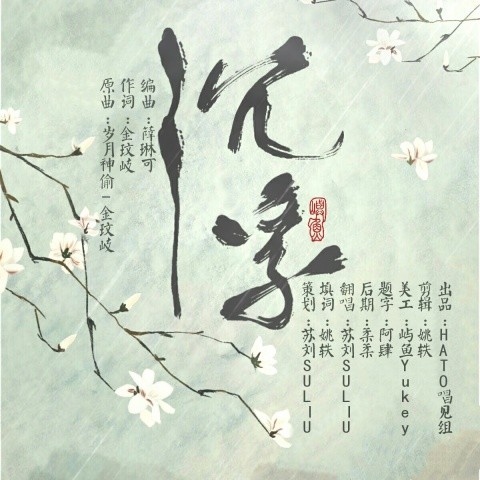 沉浮
编曲:薛琳可
作词:金玟岐
原曲:岁月神偷-金玟岐
出品:HATO唱见组
剪辑:姚轶
美工:屿鱼Yukey
题字:阿肆
后期:柔柔
翻唱:苏刘SULIU
填词:姚轶
策划:苏刘SULIU